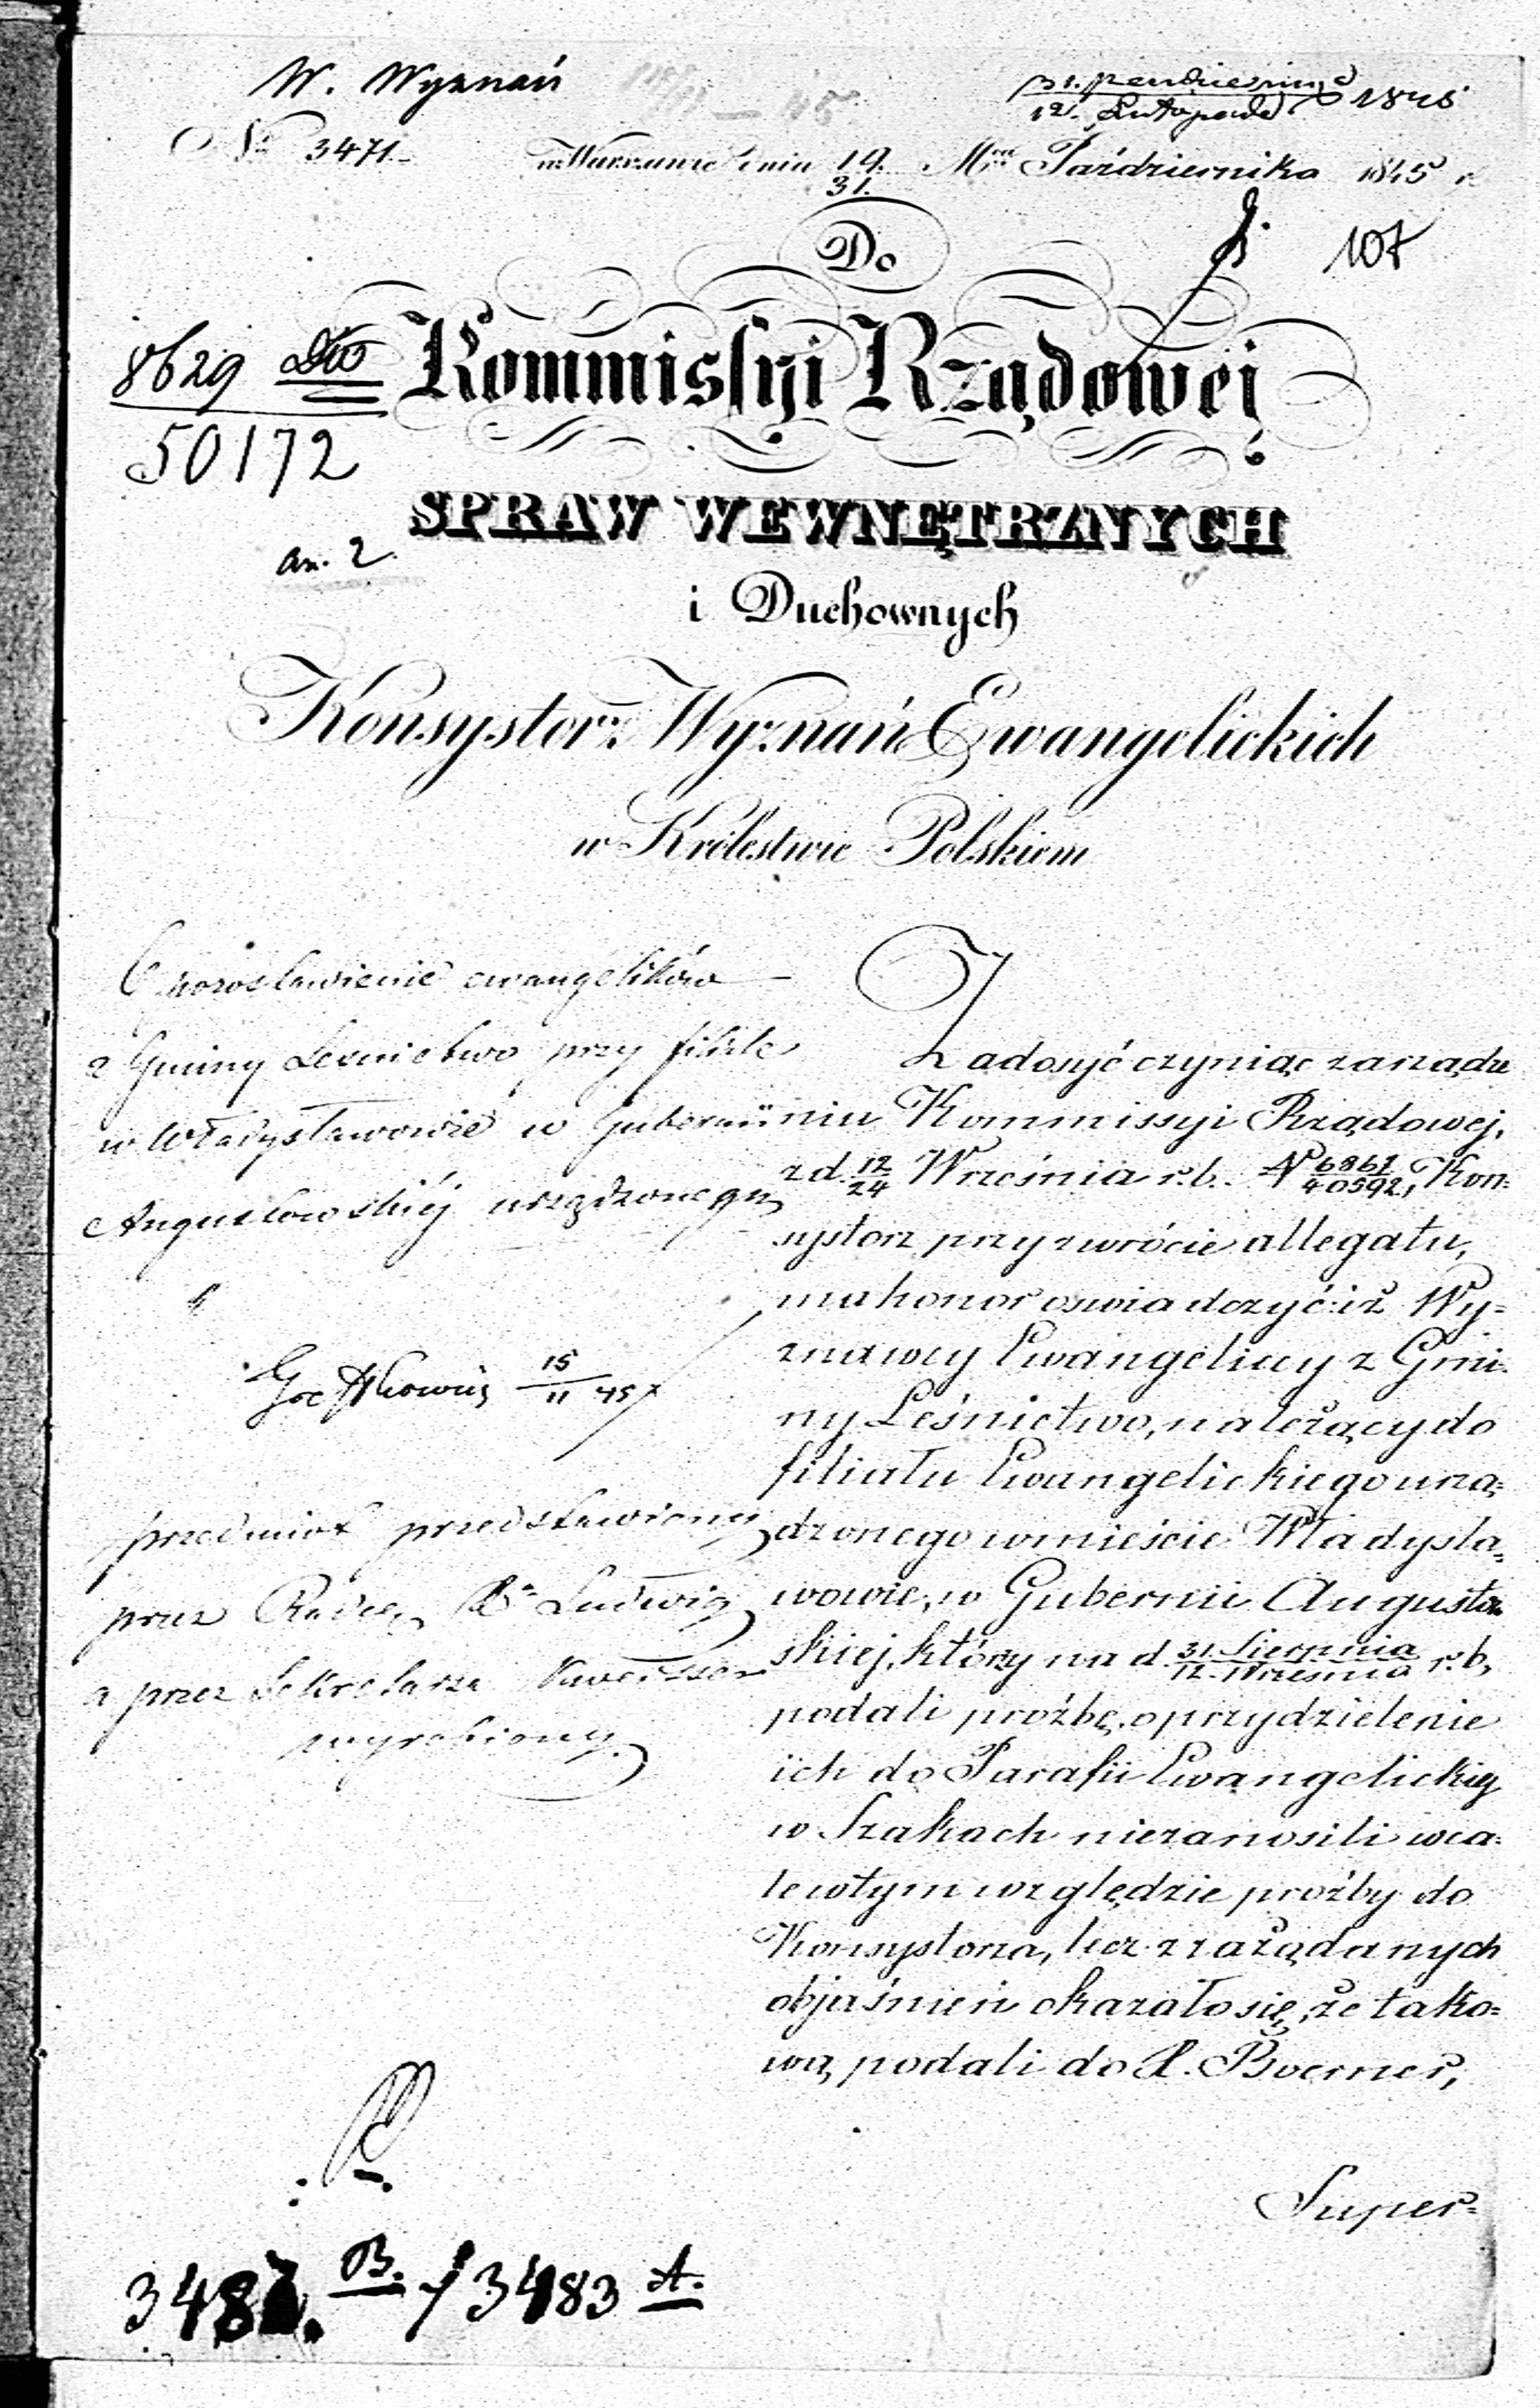 W. Wyznań
31. Października / 12. Listopada 1845
No 3471.
w Warszawie dnia 19./31. Mca Października 1845 r.
Do
107
8629 / 50172
Kommissyi Rządowej
SPRAW WEWNĘTRZNYCH
an. 2.
i Duchownych
Konsystorz Wyznań Ewangelickich
w Królestwie Polskiem
O pozostawienie ewangelików
z Gminy Leśnictwo przy filiale
w Władysławowie w Gubernii
Augustowskiéj urządzonego
15/11 45
przedmiot przedstawiony
przez Radcę Ludwig
a przez Sekretarza
wyrobiony.
Zadosyć czyniąc zarządze
niu Kommissyi Rządowej,
z d. 12/24 Września r. b. N 6861/40592, Kon=
systorz przy zwrócie allegatu,
ma honor oswiadczyć iż Wy=
znawcy Ewangeliccy z Gmi=
ny Leśnictwo, należący do
filiału Ewangelickiego urzą=
dzonego w mieście Władysła=
wowie, w Gubernii Augusto
skiej, którzy na d. 31. Sierpnia/12. Września r. b.
podali proźbę o przydzielenie
ich do Parafii Ewangelickiej
w Szakach niezanosili wca=
le w tym względzie proźby do
Konsystorza, lecz z zażądanych
objaśnień okazało się, że tako=
wą podali do X. Boerner,
Super=
348 B. / 3483 A.